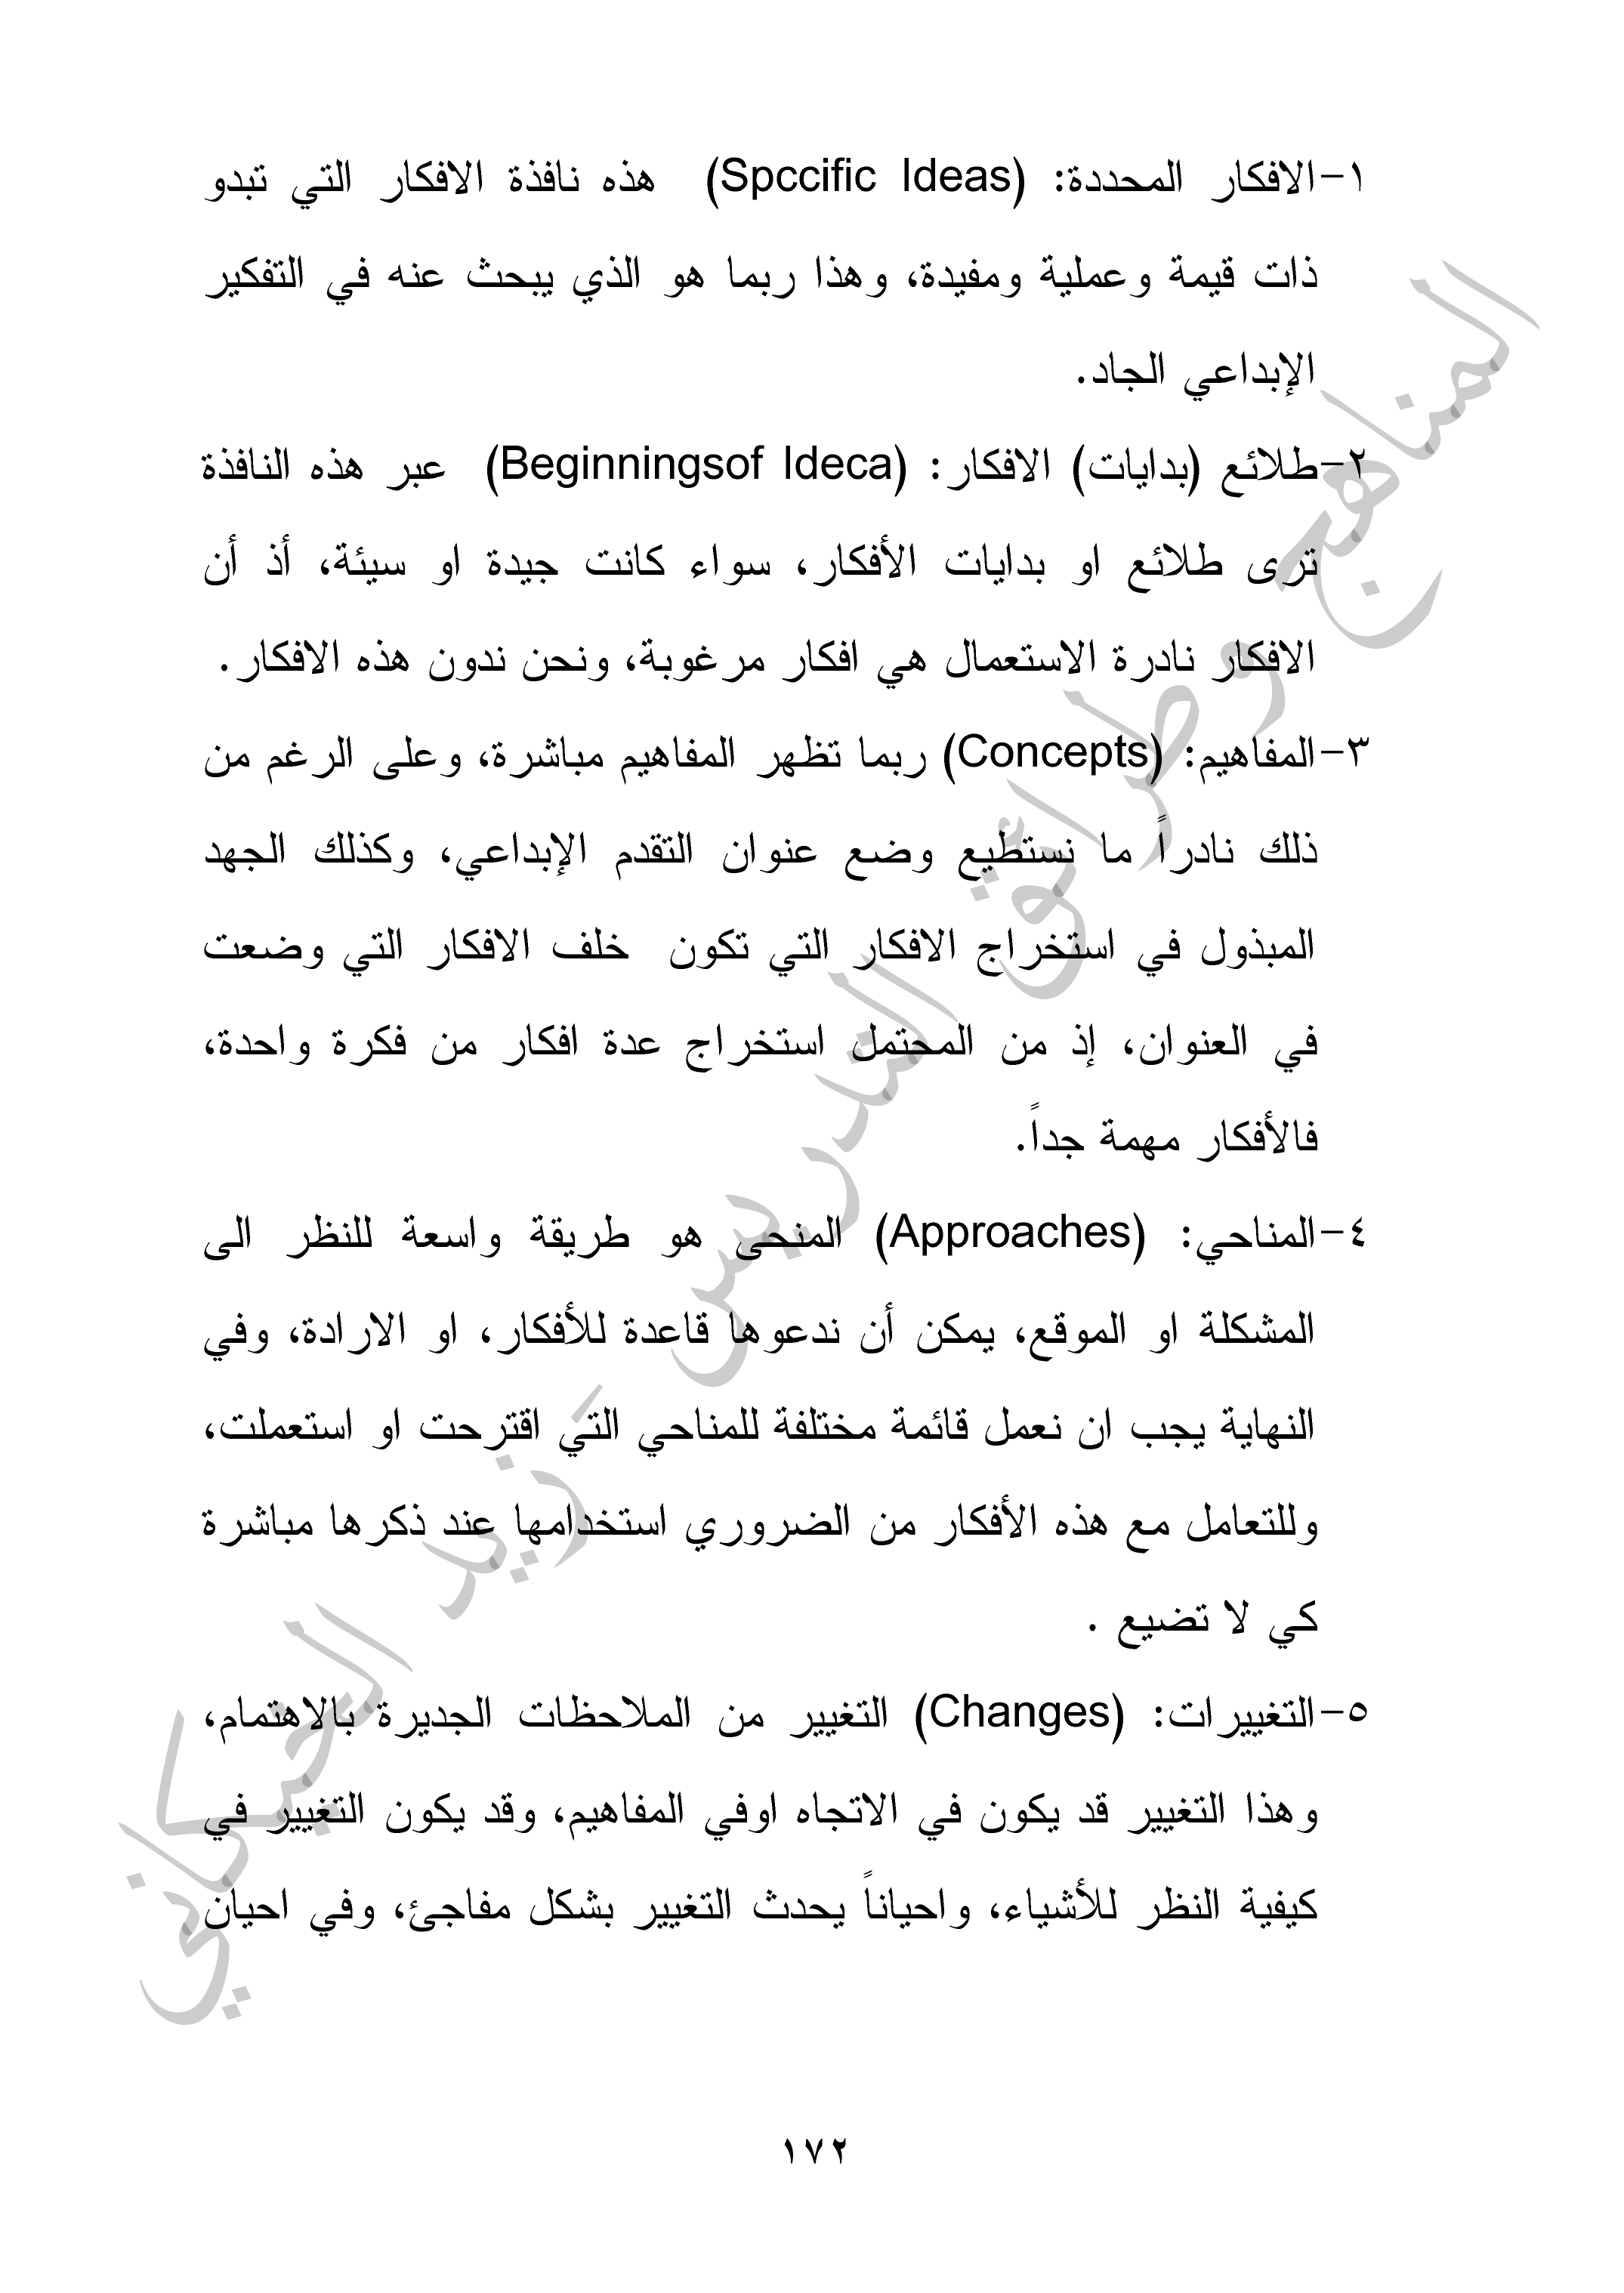 ١-الافكار المحددة: (Spccific Ideas) هذه نافذة الافكار التي تبدو
ذات قيمة وعملية ومفيدة، وهذا ربما هو الذي يبحث عنه في التفكير
الإبداعي الجاد.
٢-طلائع (بدايات) الافكار: (Beginningsof Ideca) عبر هذه النافذة
ترى طلائع او بدايات الأفكار، سواء كانت جيدة او سيئة، أذ أن
الافكار نادرة الاستعمال هي افكار مرغوبة، ونحن ندون هذه الافكار.
٣-المفاهيم: (Concepts) ربما تظهر المفاهيم مباشرة، وعلى الرغم من
ذلك نادراً ما نستطيع وضع عنوان التقدم الإبداعي، وكذلك الجهد
المبذول في استخراج الافكار التي تكون خلف الافكار التي وضعت
في العنوان، إذ من المحتمل استخراج عدة افكار من فكرة واحدة،
فالأفكار مهمة جداً.
٤-المناحي: (Approaches) المنحى هو طريقة واسعة للنظر الى
المشكلة او الموقع، يمكن أن ندعوها قاعدة للأفكار، او الارادة، وفي
النهاية يجب ان نعمل قائمة مختلفة للمناحي التي اقترحت او استعملت،
وللتعامل مع هذه الأفكار من الضروري استخدامها عند ذكرها مباشرة
كي لا تضيع .
٥-التغييرات: (Changes) التغيير من الملاحظات الجديرة بالاهتمام،
وهذا التغيير قد يكون في الاتجاه اوفي المفاهيم، وقد يكون التغيير في
كيفية النظر للأشياء، واحياناً يحدث التغيير بشكل مفاجئ، وفي احيان
١٧٢
المناهج وطرائق التدريس - زيد الخيكاني